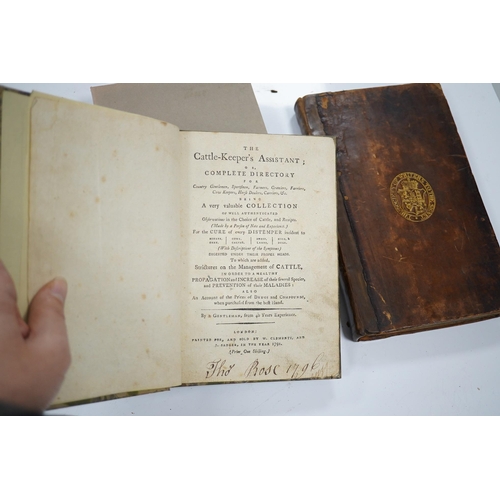 THE
Cattle-Keeper's Assistant;
OR,
COMPLETE DIRECTORY
FOR
Country Gentlemen, Sportsmen, Farmers, Graziers, Farriers,
Cow Keepers, Horse Dealers, Carriers, &c.
BEING
A very valuable COLLECTION
OF WELL AUTHENTICATED
Observations in the Choice of Cattle, and Recipes
(Made by a Person of Note and Experience)
For the CURE of every DISTEMPER incident to
(With Descriptions of the Symptoms)
To which are added,
Strictures on the Management of CATTLE,
IN ORDER TO A HEALTHY
PROPAGATION and INCREASE of their several Species,
and PREVENTION of their MALADIES:
ALSO
An Account of the Prices of DRUGS and COMPOUNDS,
when purchased from the best Hand.
By a GENTLEMAN, from 40 Years Experience.
LONDON:
PRINTED FOR, AND SOLD BY W. CLEMENTS, AND
J. SADLER, IN THE YEAR
(Price, One Shilling.)
Tho Rose 1796